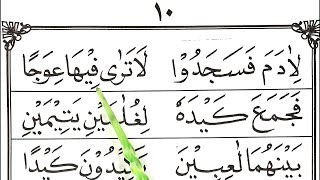 ١٠
لِاٰدَمَ فَسَجَدُوْا لَا تَرٰى فِيْهَا عِوَجًا
فَجَمَعَ كَيْدَهٗ لِغُلٰمَيْنِ يَتِيْمَيْنِ
بَيْنَهُمَا لٰعِبِيْنَ يَكِيْدُوْنَ كَيْدًا